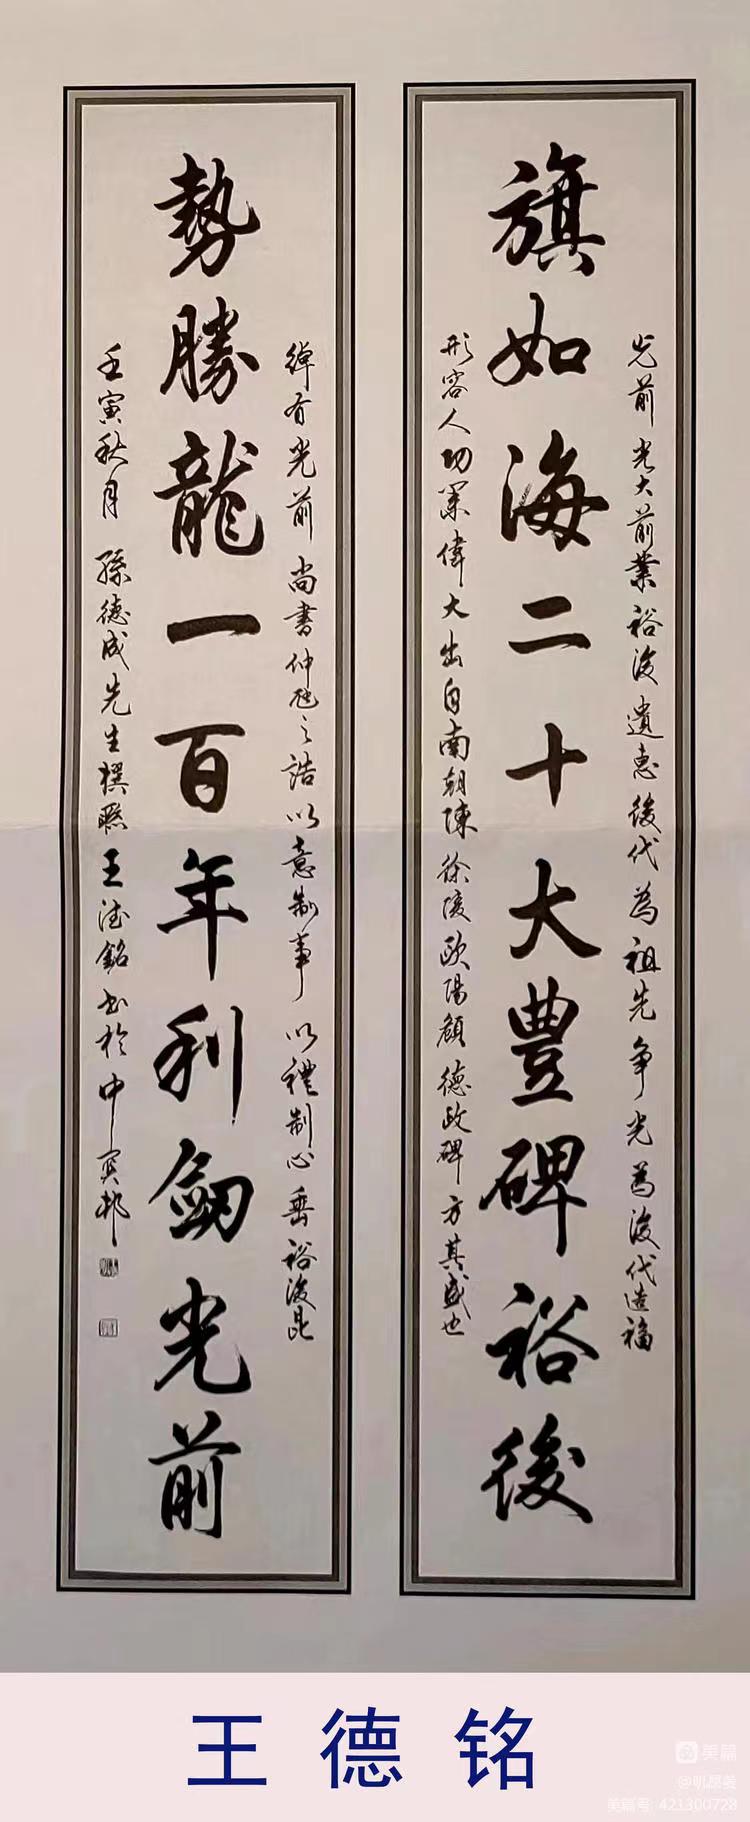 旗如海二十大豐碑裕後
光前光大前業裕後遺惠後代為祖先争光為後代造福
形容人功業偉大出自南朝陳徐陵歐陽頠德政碑方其盛也
勢勝龍一百年利劒光前
綽有光前尚書仲虺之誥以義制事以禮制心垂裕後昆
壬寅秋月孫德成先生撰聯王德銘書於中
王德铭
美篇
美篇号 421300728